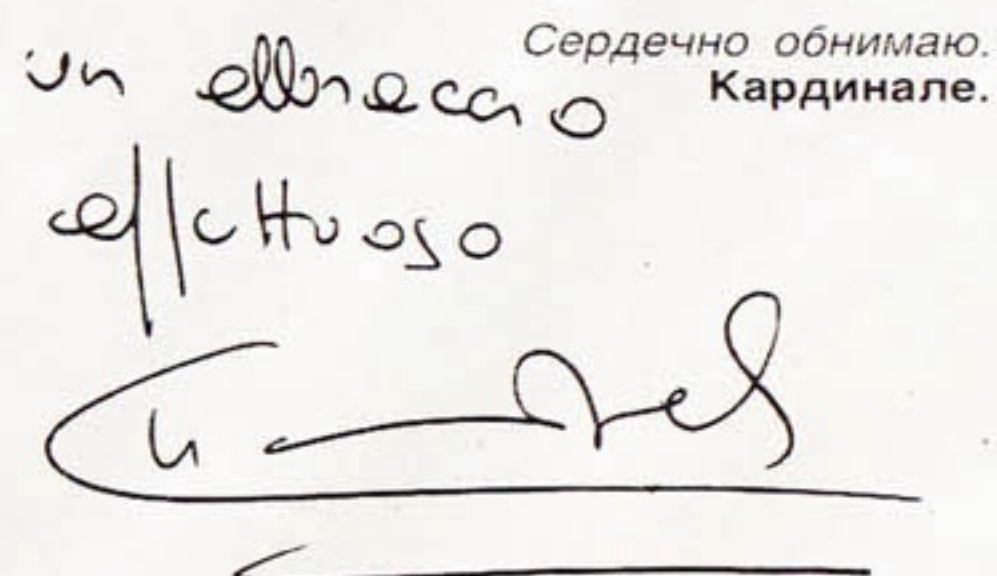 Сердечно обнимаю.
Кардинале.
un abbraccio
affettuoso